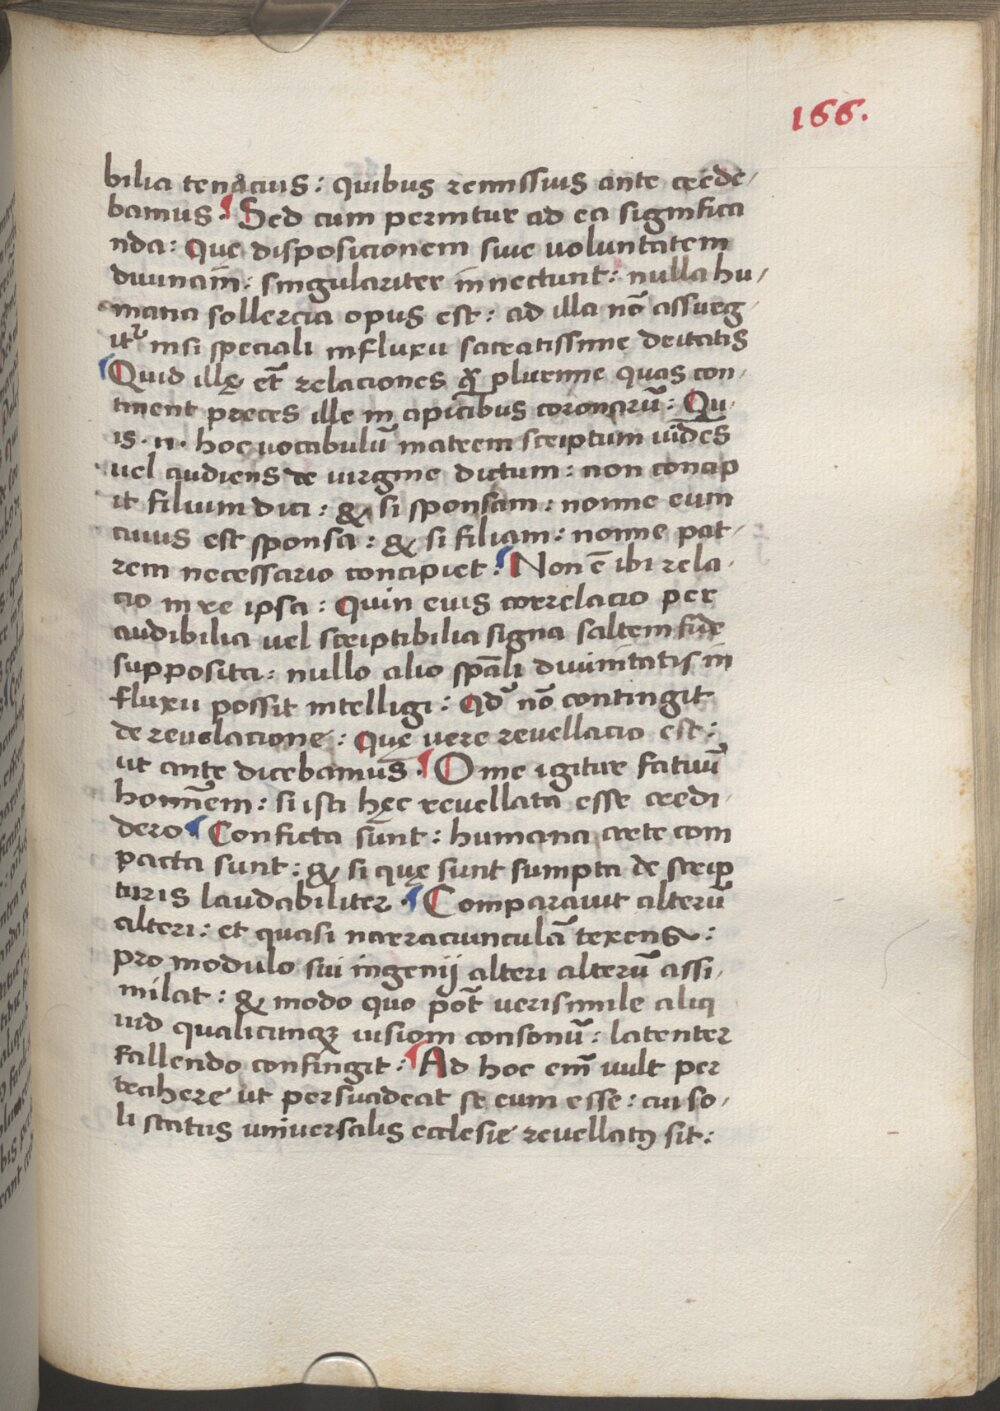 166.
bilia tenacius : quibus remissius ante crede/
bamus ¶ Sed cum permitur ad ea significa
nda : Que disposicionem siue uoluntatem
diuinam̄ : singulariter innectunt : nulla hu/
mana sollercia opus est : ad illa nō assurg/
itᷣ nisi speciali influxu sacratissime deitatis
¶ Quid illę et̄ relaciones ꝙ plurime quas con/
tinent preces ille in apicibus coronarū : Qu/
is .n. hoc uocabulū matrem scriptum uid̄es
uel audiens de uirgine dictum : non concip
it filium dici : & si sponsam : nonne eum
cuius est sponsa : & si filiam : nonne pat/
rem necessario concipiet ¶ Non ē ibi rela/
cio in re ipsa : Quin eius correlacio per
audibilia uel scriptibilia signa saltem fide
supposita : nullo alio sp̄ali diuinitatis in
fluxu possit intelligi : Qd̄ nō contingit
de reuelacione : Quę uere reuellacio est :
ut ante dicebamus ¶ O me igitur fatuū
hominem : si ista hęc reuellata esse credi/
dero ¶ Conficta sunt : humana arte com
pacta sunt : & si quę sunt sumpta de scrip
turis laudabiliter ¶ Comparauit alterū
alteri : et quasi narraciunculā texens :
pro modulo sui ingenij alteri alterū assi/
milat : & modo quo pōt uerisimile aliq
uid qualicunqꝫ uisiom consonū : latenter
fallendo confingit : ¶ Ad hoc em̄ uult per
trahere ut persuadeat se eum esse : cui so/
li status uniuersalis ecclesie reuellatꝰ sit :